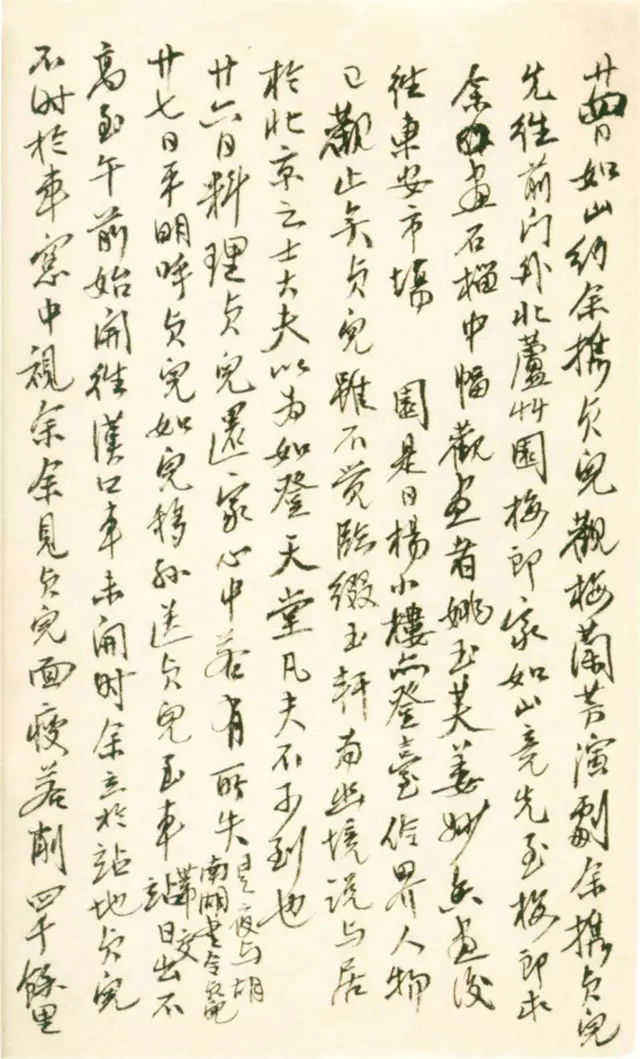 廿四日如山約余攜貞兒觀梅蘭芳演劇余攜貞兒
先往前门外北蘆艸園梅郎家如山竟先至梅郎求
余畫石榴中幅觀畫者姚玉芙姜妙香畫後
往東安市場 園是日楊小樓亦登臺伶界人物
已觀止矣貞兒雖不覺臨綴玉軒南幽境说与居
於北京之士大夫以為如登天堂凡夫不可到也
廿六日料理貞兒還家心中若有所失是夜与胡
南湖書令兒
帶交
廿七日平明呼貞兒如兒移孫送貞兒至車站日出不
高至午前始開往漢口車未開时余立於站地貞兒
不时於車窓中視余余見貞兒面瘦若削四千餘里